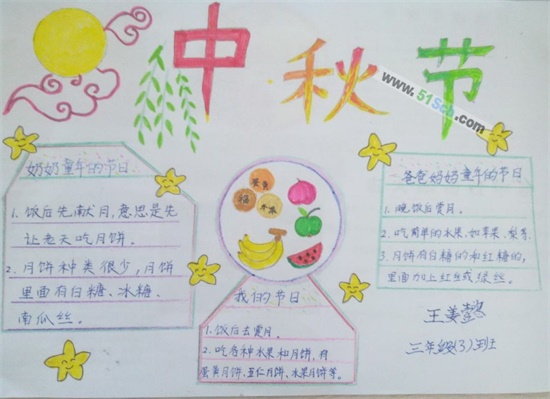 中秋节
www.51Scb.com
奶奶童年的节日
1. 饭后先献月,意思是先
让老天吃月饼。
2. 月饼种类很少,月饼
里面有白糖、冰糖、
南瓜丝。
蛋黄
五仁
水果
我们的节日
1. 饭后去赏月。
2. 吃各种水果和月饼,有
蛋黄月饼、五仁月饼、水果月饼等。
爸爸妈妈童年的节日
1. 晚饭后赏月。
2. 吃简单的水果,如苹果、梨等
3. 月饼有白糖的和红糖的,
里面加上红丝或绿丝。
王姜
三年级(3)班